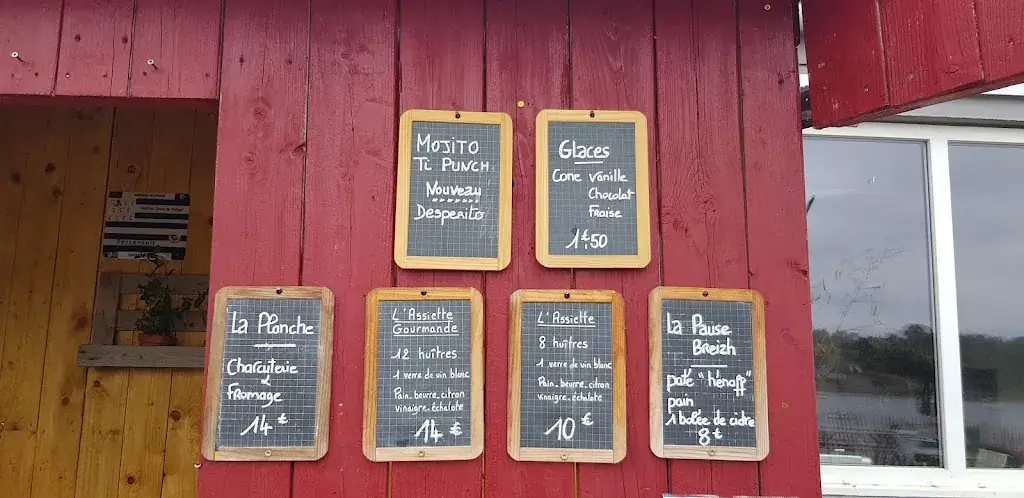 Mojito
Ti Punch
Nouveau
Desperito
Glaces
Cone vanille
Chocolat
Fraise
1€50
La Planche
Charcuterie
&
Fromage
14€
L'Assiette
Gourmande
12 huîtres
1 verre de vin blanc
Pain.beurre.citron
vinaigre.échalote
14€
L'Assiette
8 huîtres
1 verre de vin blanc
Pain.beurre.citron
vinaigre.échalote
10€
La Pause
Breizh
paté "hénaff"
pain
1 bolée de cidre
8€